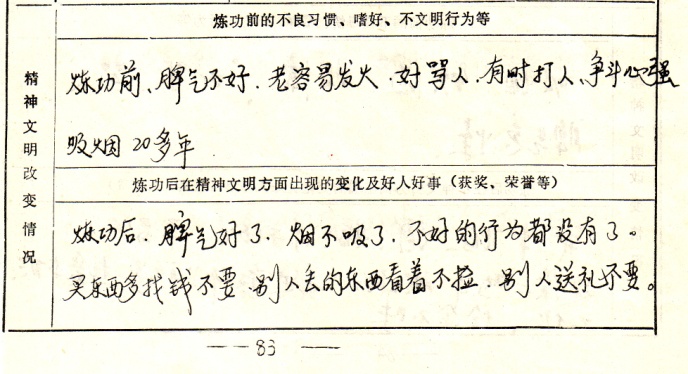 炼功前的不良习惯、嗜好、不文明行为等
精神文明改变情况
炼功前、脾气不好.老容易发火.好骂人.有时打人、争斗心强
吸烟20多年
炼功后在精神文明方面出现的变化及好人好事(获奖、荣誉等)
炼功后.脾气好了.烟不吸了.不好的行为都没有了。
买东西多找钱不要.别人丢的东西看着不捡.别人送礼不要。
— 83 —